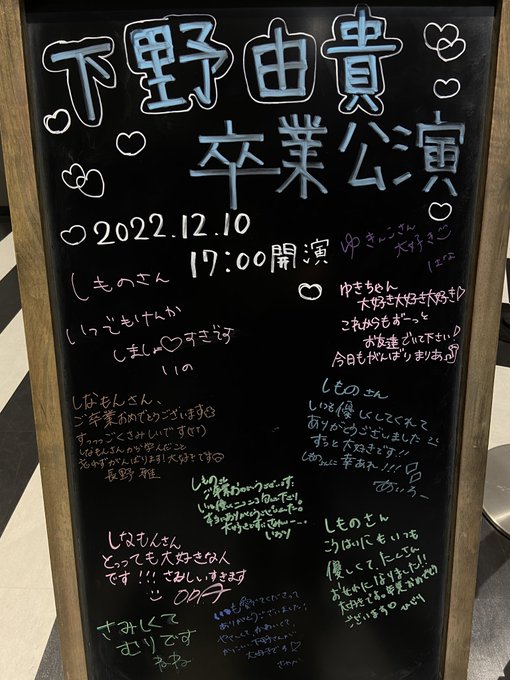 下野由貴
卒業公演
2022.12.10
17:00開演
ゆきんこさん
大好き
はな
しものさん
いつでもけんか
しましょ♡すきです
いの
ゆきちゃん
大好き大好き大好き♡
これからもずーっと
お友達でいて下さい!
今日もがんばりまりあ
しなもんさん、
ご卒業おめでとうございます
すっっっごくさみしいです
しなもんさんから学んだこと
忘れずがんばります!大好きです
長野 雅
しものさん
いつも優しくしてくれて
ありがとうございました
ずっと大好きです!!
しものさんに幸あれ!!!
しもの
ご卒業おめでとうございます!
いおり
しなもんさん
とっても大好きな人
です!!! さみしいすきます
ODA
しものさん
こうはいにもいつも
優しくて、たくさん
おせわになりました!!
大好きです。卒業おめでとう
ございます♡
さみしくて
むりです
ねね
いつも愛してくださって
ありがとうございました!
やさしくて、かわいくて
かっこいい下野さんが
大好きです♡